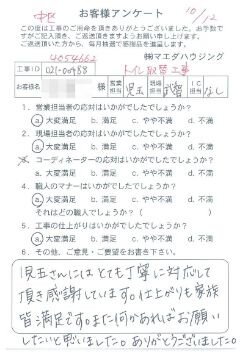 お客様アンケート
中区
10/12
この度は工事のご用命を頂きありがとうございました。お手数で
すがご記入頂き、ご返送頂きますようお願い申し上げます。
ご返送頂いた方から、毎月抽選で感謝品を進呈します。
4054662
㈱マエダハウジング
工事ID
トイレ取替工事
お客様名
様
営業担当
児玉
現場担当
IC担当
なし
1. 営業担当者の応対はいかがでしたでしょうか?
a. 大変満足 b. 満足 c. やや不満 d. 不満
2. 現場担当者の応対はいかがでしたでしょうか?
a. 大変満足 b. 満足 c. やや不満 d. 不満
3. コーディネーターの応対はいかがでしたでしょうか?
a. 大変満足 b. 満足 c. やや不満 d. 不満
4. 職人のマナーはいかがでしたでしょうか?
a. 大変満足 b. 満足 c. やや不満 d. 不満
それはどの職人でしょうか?( )
5. 工事の仕上がりはいかがでしたでしょうか?
a. 大変満足 b. 満足 c. やや不満 d. 不満
6. その他、ご意見・ご要望をお書き下さい。
児玉さんにはとても丁寧に対応して
頂き感謝しています。仕上がりも家族
皆満足です。また何かあればお願い
したいと思いました。ありがとうございました。